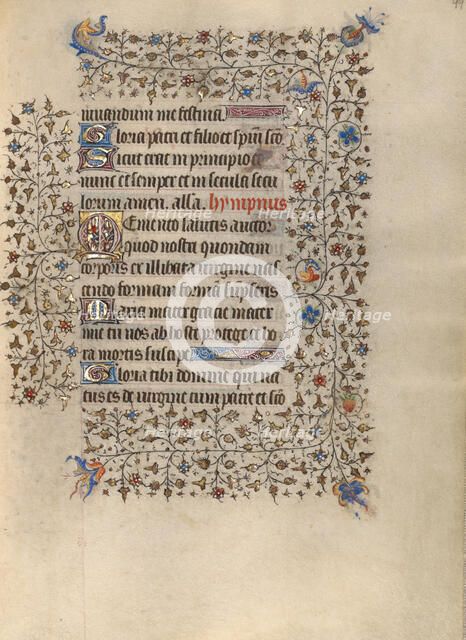 iuuandum me festina.
Gloria patri et filio et spiri sco
Sicut erat in principio et
nunc et semper et in secula secu
lorum amen. alla. hympnus
Memento salutis auctor
quod nostri quondam
corporis ex illibata virgine nas
cendo formam
Maria mater gracie mater
mie tu nos ab hoste protege et ho
ra mortis suscipe
Gloria tibi domine qui na
tus es de virgine cum patre et sco
Heritage
Heritage
Heritage
Heritage
Heritage
Heritage